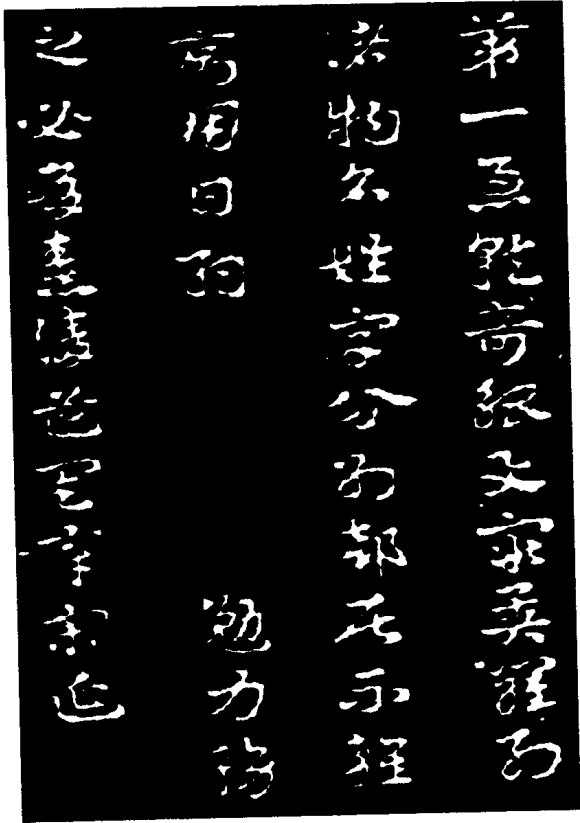 第一急就奇觚與眾異羅列
諸物名姓字分別部居不雜
廁用日約勉力務
之必有憙請道其章宋延